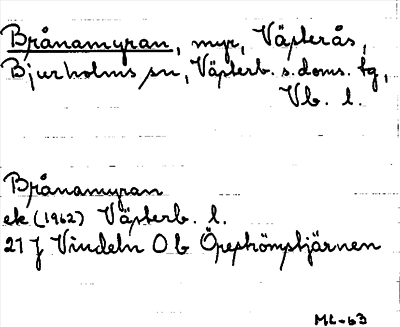 Brånamyran, myr, Västerås,
Bjurholms sn, Västerb. s. doms. tg,
Vb. l.
Brånamyran
ek (1962) Västerb. l.
21 J Vindeln 0 b Örestkömstjärnen
ML-63